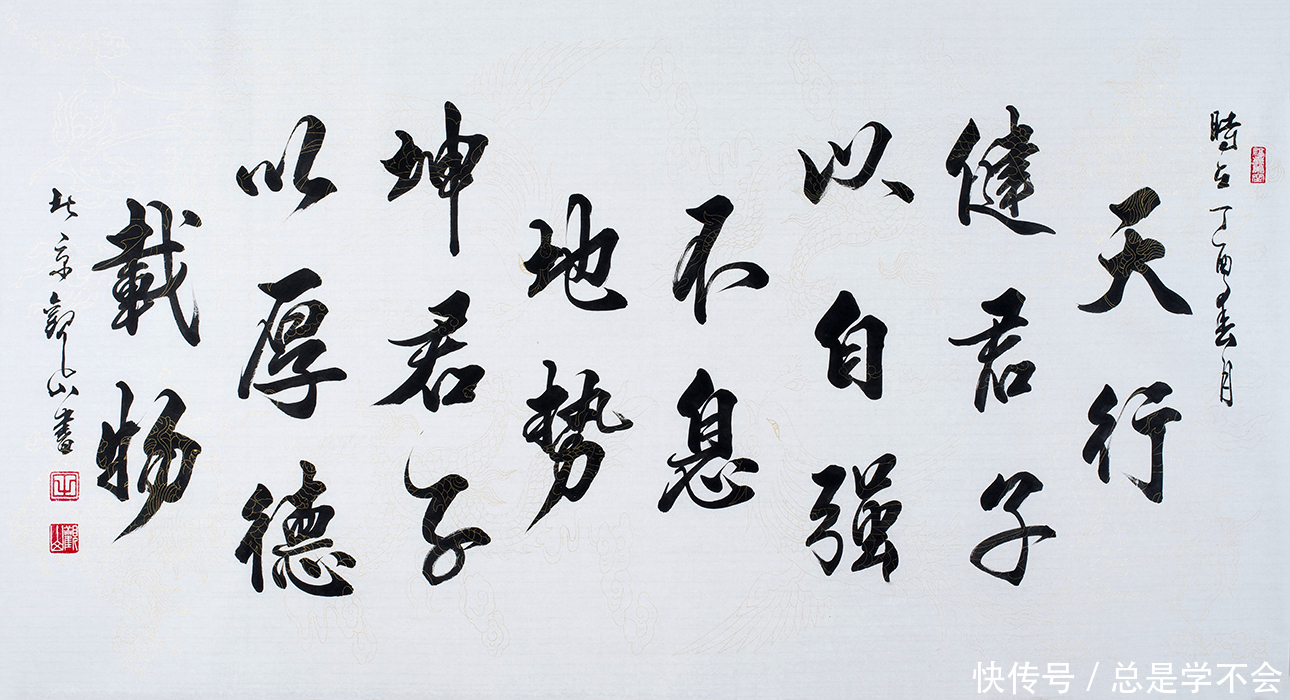 時在丁酉春月
天行
健君子
以自强
不息
地势
坤君子
以厚德
載物
北京觀山書
觀山
快传号 / 总是学不会